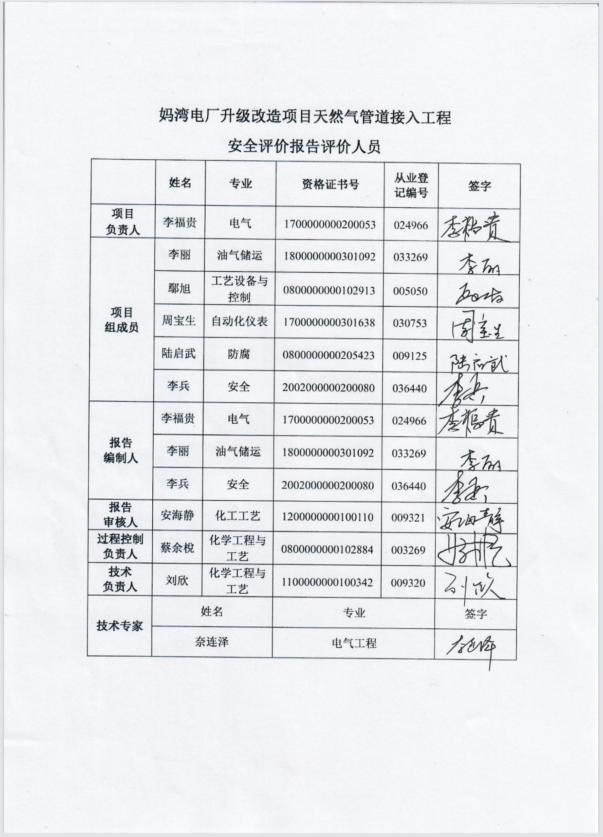 妈湾电厂升级改造项目天然气管道接入工程
安全评价报告评价人员
姓名 专业 资格证书号 从业登记编号 签字
项目负责人 李福贵 电气 1700000000200053 024966 李福贵
项目组成员 李丽 油气储运 1800000000301092 033269 李丽
鄢旭 工艺设备与控制 0800000000102913 005050
周宝生 自动化仪表 1700000000301638 030753 周宝生
陆启武 防腐 0800000000205423 009125 陆启武
李兵 安全 2002000000200080 036440 李兵
报告编制人 李福贵 电气 1700000000200053 024966 李福贵
李丽 油气储运 1800000000301092 033269 李丽
李兵 安全 2002000000200080 036440 李兵
报告审核人 安海静 化工工艺 1200000000100110 009321 安海静
过程控制负责人 蔡余棁 化学工程与工艺 0800000000102884 003269
技术负责人 刘欣 化学工程与工艺 1100000000100342 009320 刘欣
技术专家 姓名 专业 签字
奈连泽 电气工程 奈连泽